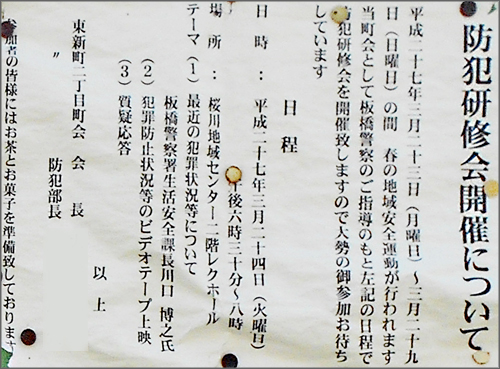 防犯研修会開催について
平成二十七年三月二十三日（月曜日）～三月二十九
日（日曜日）の間　春の地域安全運動が行われます
当町会として板橋警察のご指導のもと左記の日程で
防犯研修会を開催致しますので大勢の御参加お待ち
しています
日程
日時：平成二十七年三月二十四日（火曜日）
午後六時三十分～八時
場所：桜川地域センター二階レクホール
テーマ（1）最近の犯罪状況等について
板橋警察署生活安全課長川口　博之氏
（2）犯罪防止状況等のビデオテープ上映
（3）質疑応答
以上
東新町二丁目町会　会長
〃　防犯部長
参加者の皆様にはお茶とお菓子を準備致しております